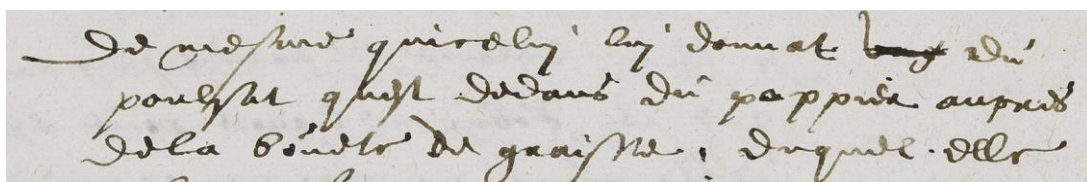 De mesme quiceluy luy donnat du
poulsat quest dedans du pappier aupres
dela bouete de graisse, duquel elle